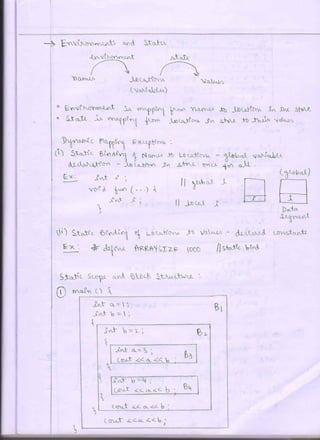 → Environments and States
environment state
names locations values
(variables)
* Environment is mapping from names to locations in the store
* State is mapping from locations in store to their values
Dynamic Mapping Exceptions :
(i) Static Binding of Names to Locations - global variable
declaration - location in store once for all
Ex: int i ; (global)
void fun (...) { // global i
int i ; // local i i
} Data Segment
(ii) Static Binding of Locations to Values - declared constants
Ex : # define ARRAYSIZE 1000 // static bind
Static Scope and Block Structure :
① main () {
int a = 1 ; B1
int b = 1 ;
{
int b = 2 ; B2
{
int a = 3 ;
cout << a << b ; B3
}
{
int b = 4 ;
cout << a << b ; B4
}
cout << a << b ;
}
cout << a << b ;
}